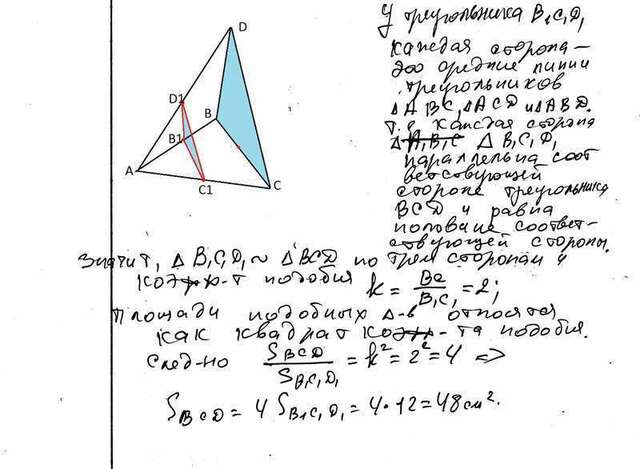 D
D1
B
B1
A
C1
C
У треугольника B₁C₁D₁
каждая сторона –
это средние линии
треугольников
△ABC, △ACD и △ABD.
т.е. каждая сторона
△ B₁C₁D₁
параллельна соот
ветствующей
стороне треугольника
BCD и равна
половине соответ-
ствующей стороны.
Значит, △ B₁C₁D₁ ~ △BCD по трем сторонам и
коэф-т подобия k = BC/B₁C₁ = 2;
Площади подобных △-в относятся
как квадрат коэф-та подобия.
След-но S_BCD/S_B₁C₁D₁ = k² = 2² = 4 ⇒
S_BCD = 4 S_B₁C₁D₁ = 4 • 12 = 48 см².